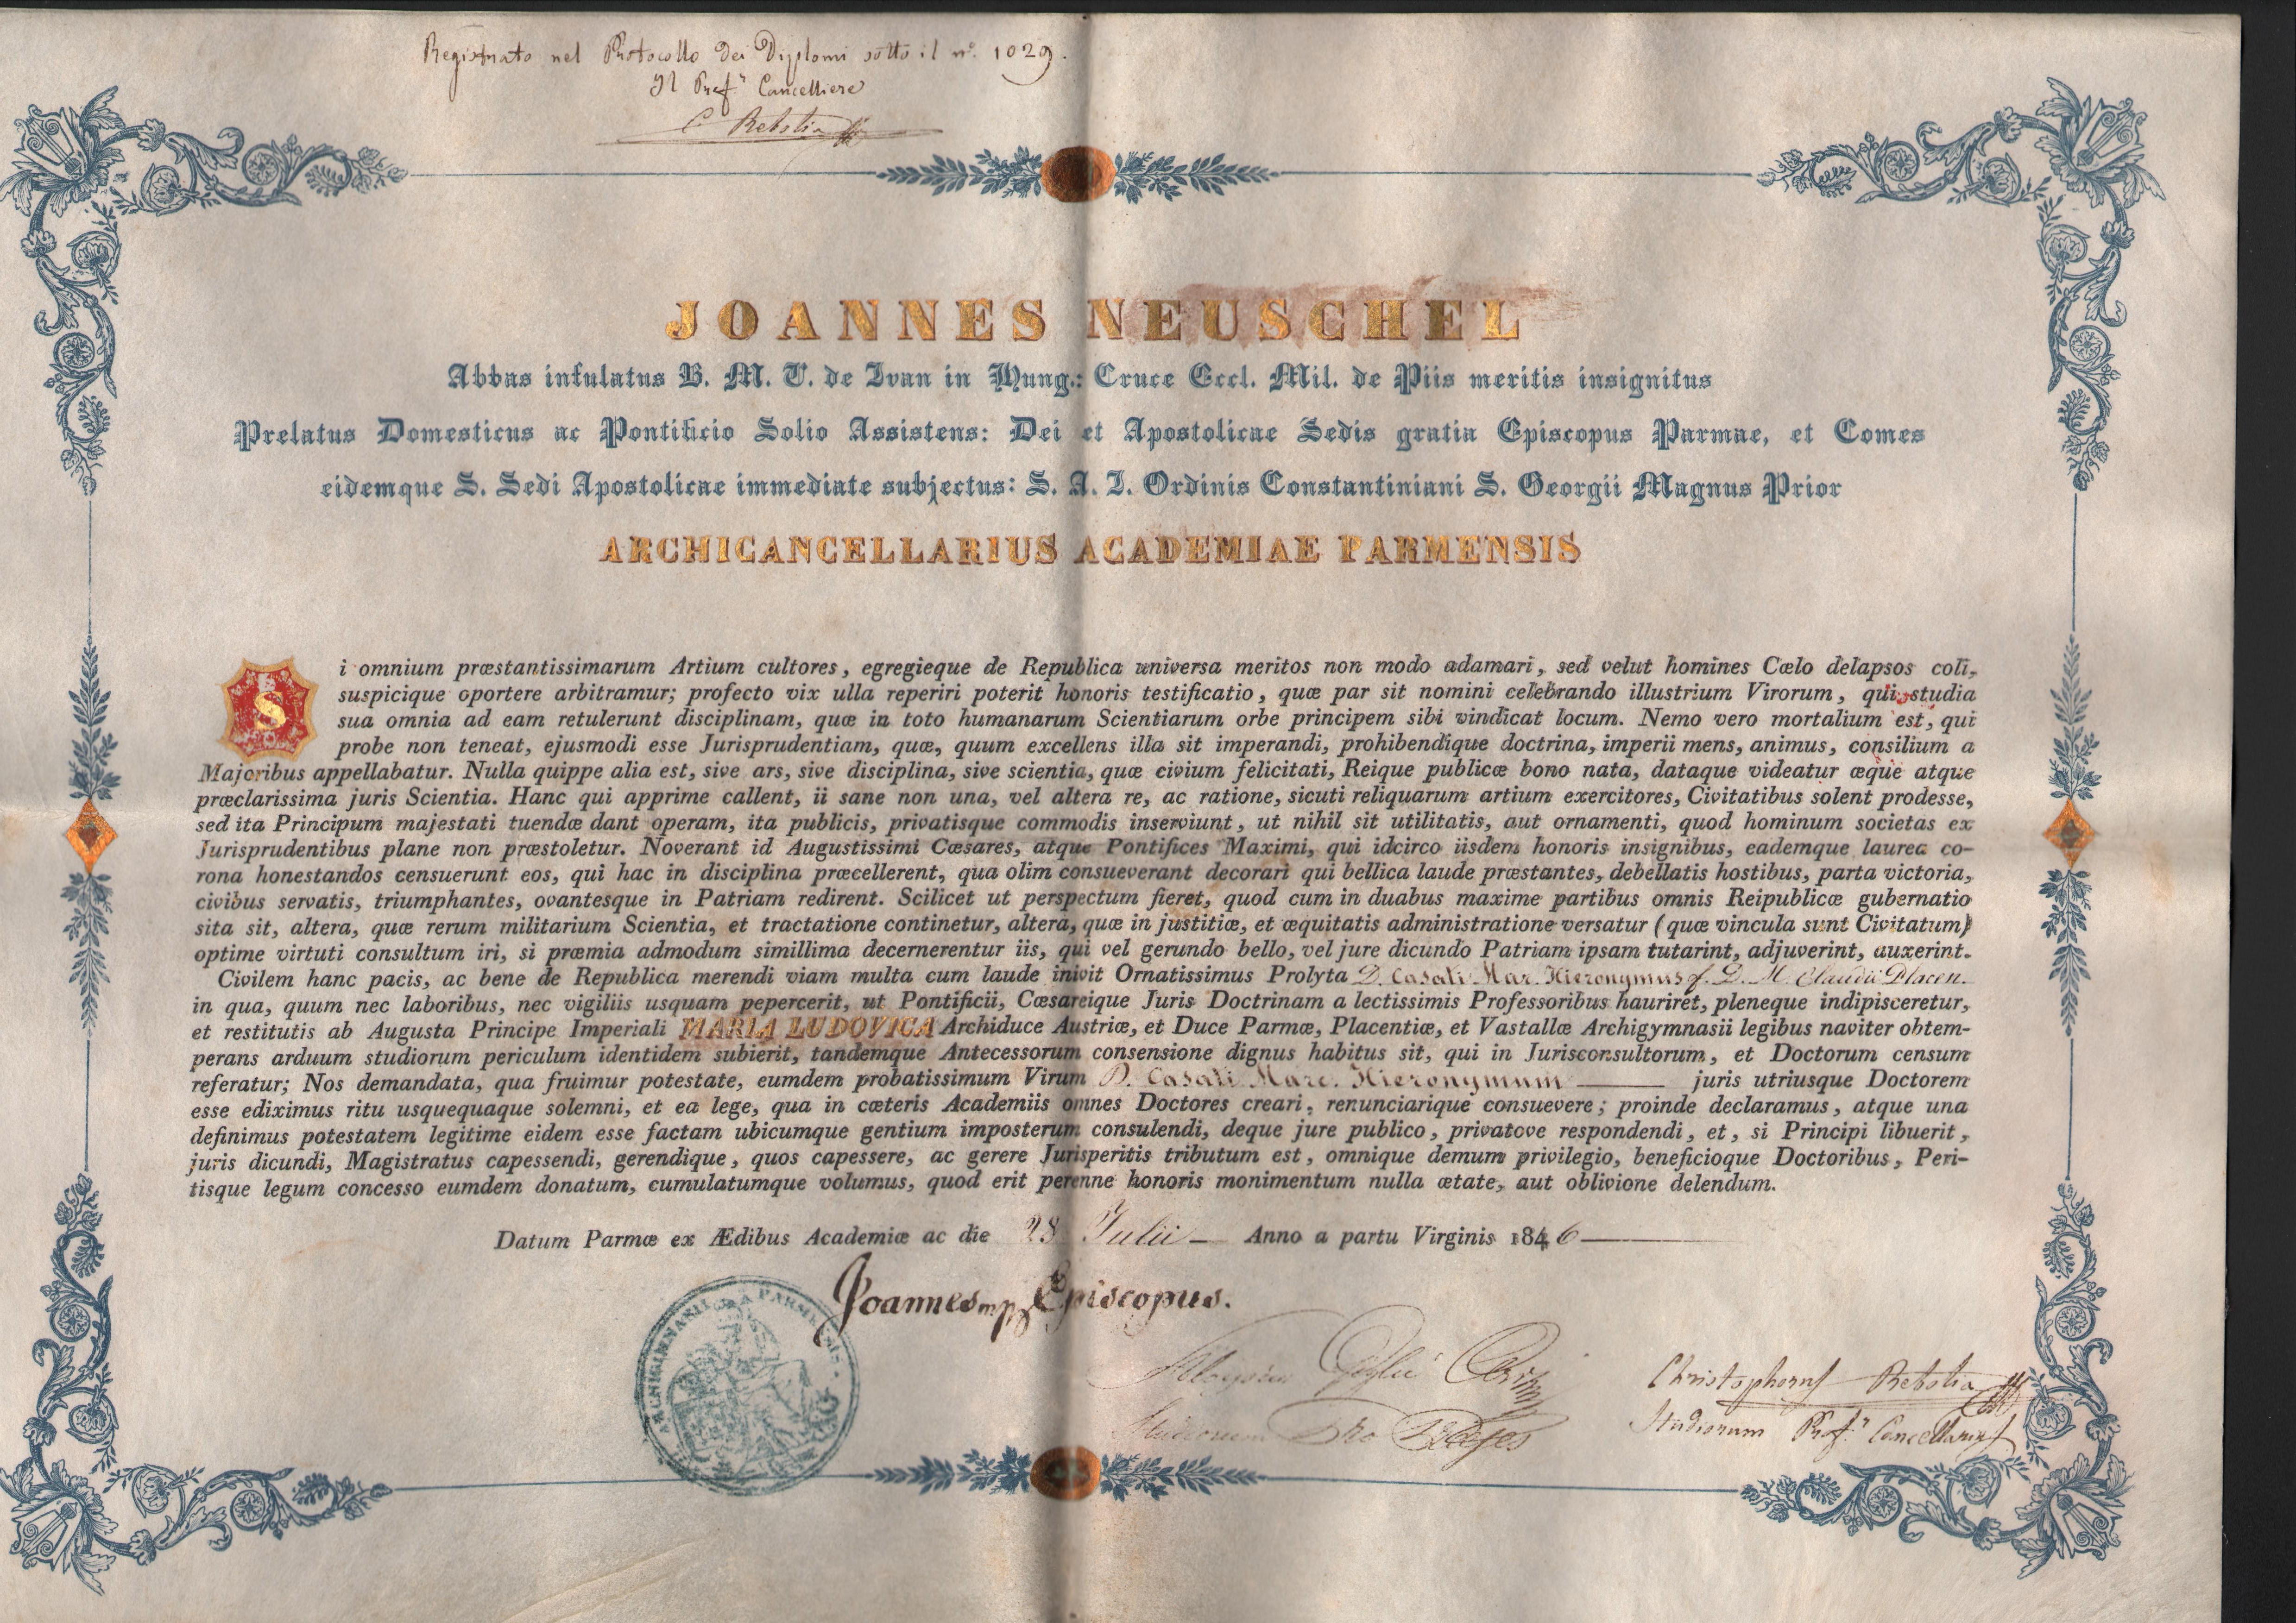 Registrato nel Protocollo dei Diplomi sotto il n.º 1029.
Il Prof.r Cancelliere
C Rebolia
JOANNES NEUSCHEL
Abbas infulatus B. M. V. de Ivan in Hung.: Cruce Eccl. Mil. de Piis meritis insignitus
Prelatus Domesticus ac Pontificio Solio Assistens: Dei et Apostolicae Sedis gratia Episcopus Parmae, et Comes
eidemque S. Sedi Apostolicae immediate subjectus: S. A. I. Ordinis Constantiniani S. Georgii Magnus Prior
ARCHICANCELLARIUS ACADEMIAE PARMENSIS
Si omnium præstantissimarum Artium cultores, egregieque de Republica universa meritos non modo adamari, sed velut homines Cœlo delapsos coli,
suspicique oportere arbitramur; profecto vix ulla reperiri poterit honoris testificatio, quæ par sit nomini celebrando illustrium Virorum, qui studia
sua omnia ad eam retulerunt disciplinam, quæ in toto humanarum Scientiarum orbe principem sibi vindicat locum. Nemo vero mortalium est, qui
probe non teneat, ejusmodi esse Jurisprudentiam, quæ, quum excellens illa sit imperandi, prohibendique doctrina, imperii mens, animus, consilium a
Majoribus appellabatur. Nulla quippe alia est, sive ars, sive disciplina, sive scientia, quæ civium felicitati, Reique publicæ bono nata, dataque videatur æque atque
præclarissima juris Scientia. Hanc qui apprime callent, ii sane non una, vel altera re, ac ratione, sicuti reliquarum artium exercitores, Civitatibus solent prodesse,
sed ita Principum majestati tuendæ dant operam, ita publicis, privatisque commodis inserviunt, ut nihil sit utilitatis, aut ornamenti, quod hominum societas ex
Jurisprudentibus plane non præstoletur. Noverant id Augustissimi Cæsares, atque Pontifices Maximi, qui idcirco iisdem honoris insignibus, eademque laurea co-
rona honestandos censuerunt eos, qui hac in disciplina præcellerent, qua olim consueverant decorari qui bellica laude præstantes, debellatis hostibus, parta victoria,
civibus servatis, triumphantes, ovantesque in Patriam redirent. Scilicet ut perspectum fieret, quod cum in duabus maxime partibus omnis Reipublicæ gubernatio
sita sit, altera, quæ rerum militarium Scientia, et tractatione continetur, altera, quæ in justitiæ, et æquitatis administratione versatur (quæ vincula sunt Civitatum)
optime virtuti consultum iri, si præmia admodum simillima decernerentur iis, qui vel gerundo bello, vel jure dicundo Patriam ipsam tutarint, adjuverint, auxerint.
Civilem hanc pacis, ac bene de Republica merendi viam multa cum laude inivit Ornatissimus Prolyta D. Casali Mar. Hieronymus f. D. M. Claudii Placen.
in qua, quum nec laboribus, nec vigiliis usquam pepercerit, ut Pontificii, Cæsareique Juris Doctrinam a lectissimis Professoribus hauriret, pleneque indipisceretur,
et restitutis ab Augusta Principe Imperiali MARIA LUDOVICA Archiduce Austriæ, et Duce Parmæ, Placentiæ, et Vastallæ Archigymnasii legibus naviter obtem-
perans arduum studiorum periculum identidem subierit, tandemque Antecessorum consensione dignus habitus sit, qui in Jurisconsultorum, et Doctorum censum
referatur; Nos demandata, qua fruimur potestate, eumdem probatissimum Virum D. Casali Marc. Hieronymum juris utriusque Doctorem
esse ediximus ritu usquequaque solemni, et ea lege, qua in cæteris Academiis omnes Doctores creari, renunciarique consuevere; proinde declaramus, atque una
definimus potestatem legitime eidem esse factam ubicumque gentium imposterum consulendi, deque jure publico, privatove respondendi, et, si Principi libuerit,
juris dicundi, Magistratus capessendi, gerendique, quos capessere, ac gerere Jurisperitis tributum est, omnique demum privilegio, beneficioque Doctoribus, Peri-
tisque legum concesso eumdem donatum, cumulatumque volumus, quod erit perenne honoris monimentum nulla ætate, aut oblivione delendum.
Datum Parmæ ex Ædibus Academiæ ac die 28 Julii Anno a partu Virginis 1846
Joannes mp Episcopus.
Aloysius
Studiorum Præses
Christophorus Rebolia
Studiorum Prof.r Cancellarius